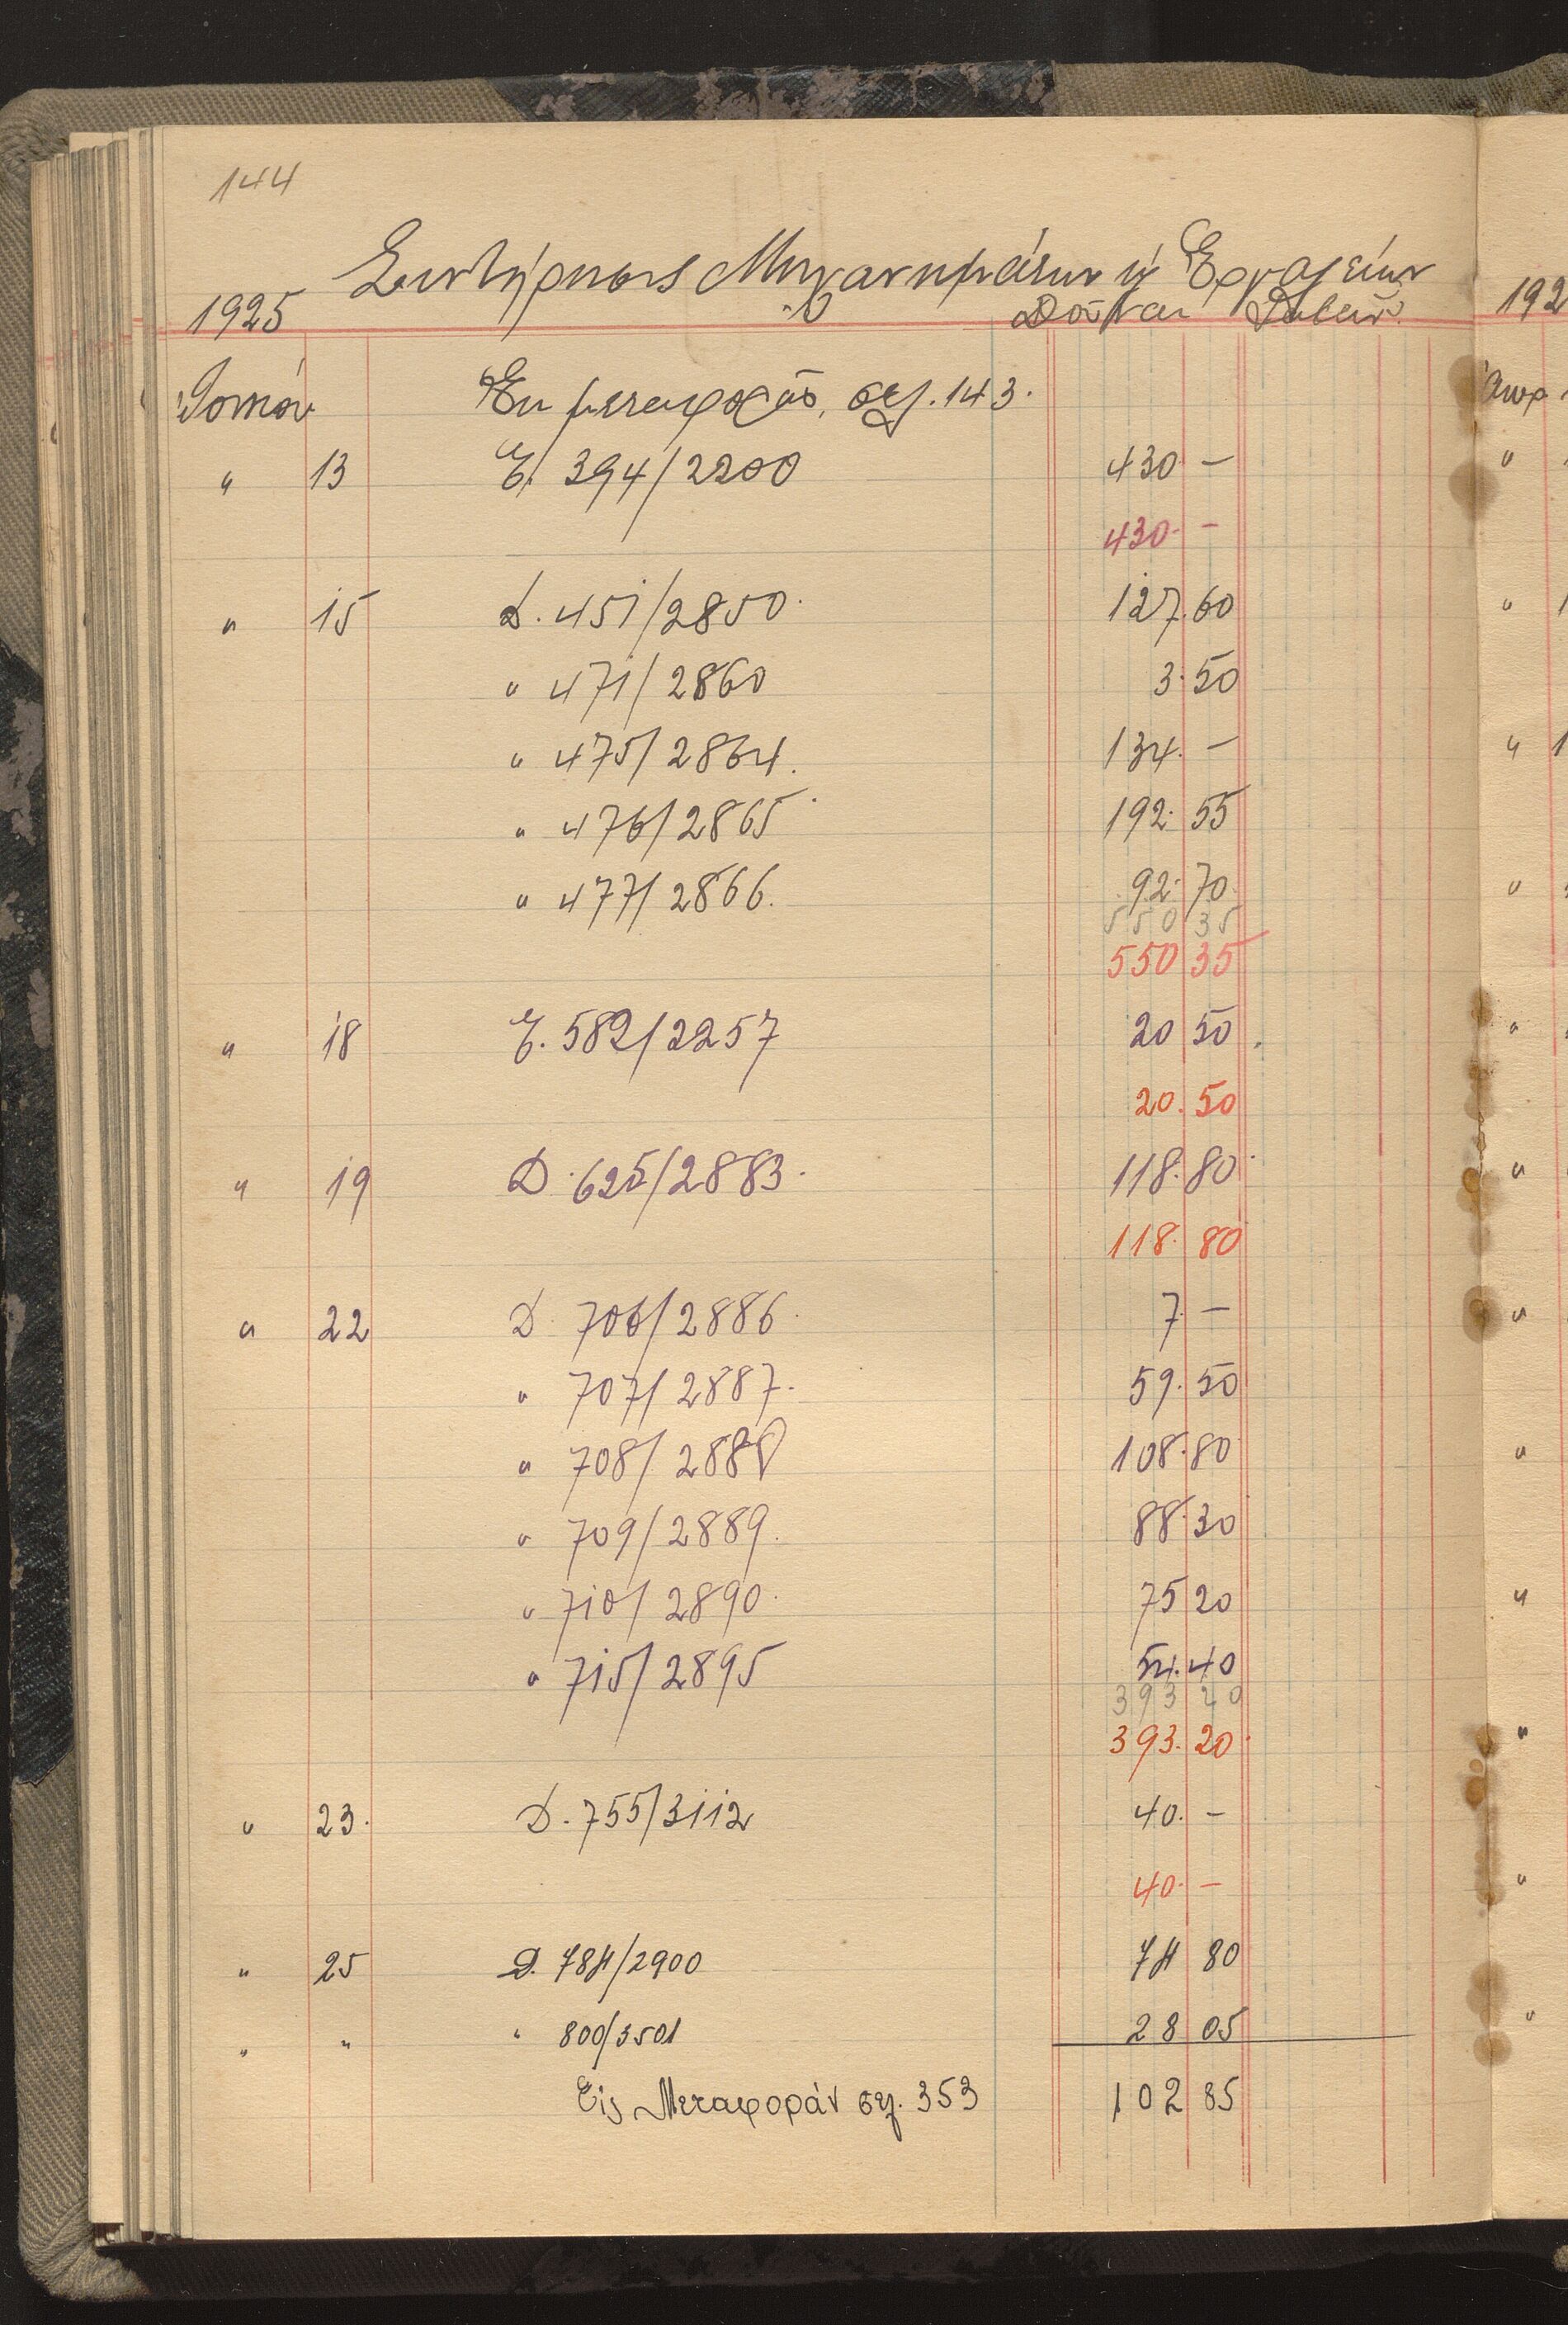 144
Συντήρησις Μηχανημάτων ἢ Ἐργαλείων
1925 Δοῦναι Λαβεῖν
192
Ἰουνίου Ἐκ μεταφορᾶς, σελ. 143.
" 13 Ε. 394/2200 430 —
430 —
" 15 D. 451/2850 127.60
" 471/2860 3.50
" 475/2864. 134. —
" 476/2865 192.55
" 477/2866. 92.70
550 35
550 35
" 18 Ε. 582/2257 20 50
20.50
" 19 D. 625/2883. 118.80
118.80
" 22 D. 706/2886. 7. —
" 707/2887. 59.50
" 708/2888 108.80
" 709/2889. 88.30
" 710/2890. 75 20
" 715/2895 54.40
393 20
393.20
" 23. D. 755/3112 40. —
40. —
" 25 D. 784/2900 74 80
" " " 800/3501 28 05
Εἰς Μεταφοράν σελ. 353 102 85